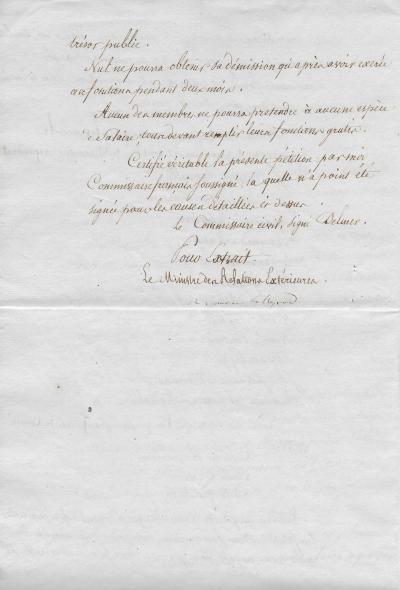 trésor public.
Nul ne pourra obtenir sa démission qu'après avoir exercé
ses fonctions pendant deux mois.
Aucun des membres ne pourra prétendre à aucune espèce
de Salaire, tous devant remplir leurs fonctions gratis.
Certifié véritable la présente pétition par moi
Commissaire français soussigné, la quelle n'a point été
signée pour les causes détaillées ci dessus.
Le Commissaire civil, signé Delner.
Pour Extrait.
Le Ministre des Relations Extérieures.